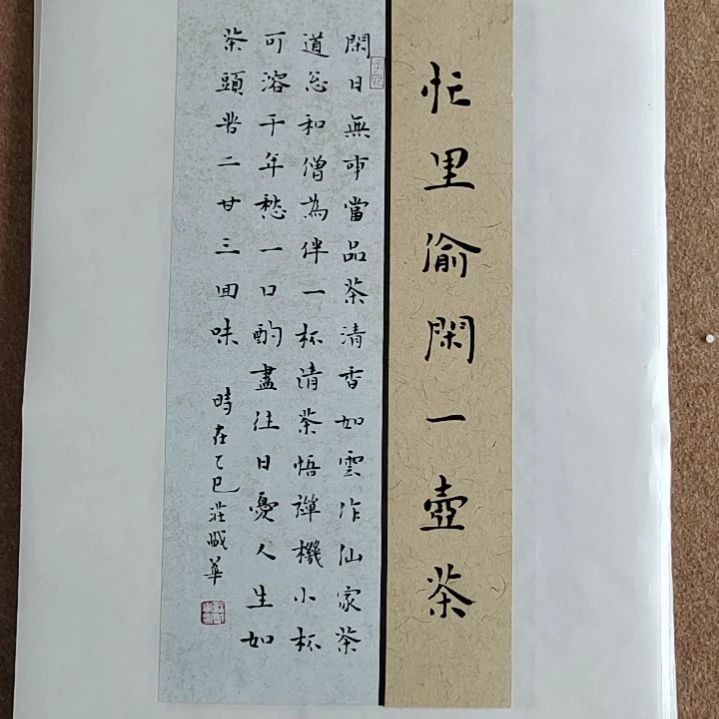 忙里偷閑一壺茶
閑日無事當品茶清香如雲作仙家茶
道怎和僧為伴一杯清茶悟禪機小杯
可溶千年愁一口酌盡往日憂人生如
茶頭苦二甘三回味
時在乙巳莊成華